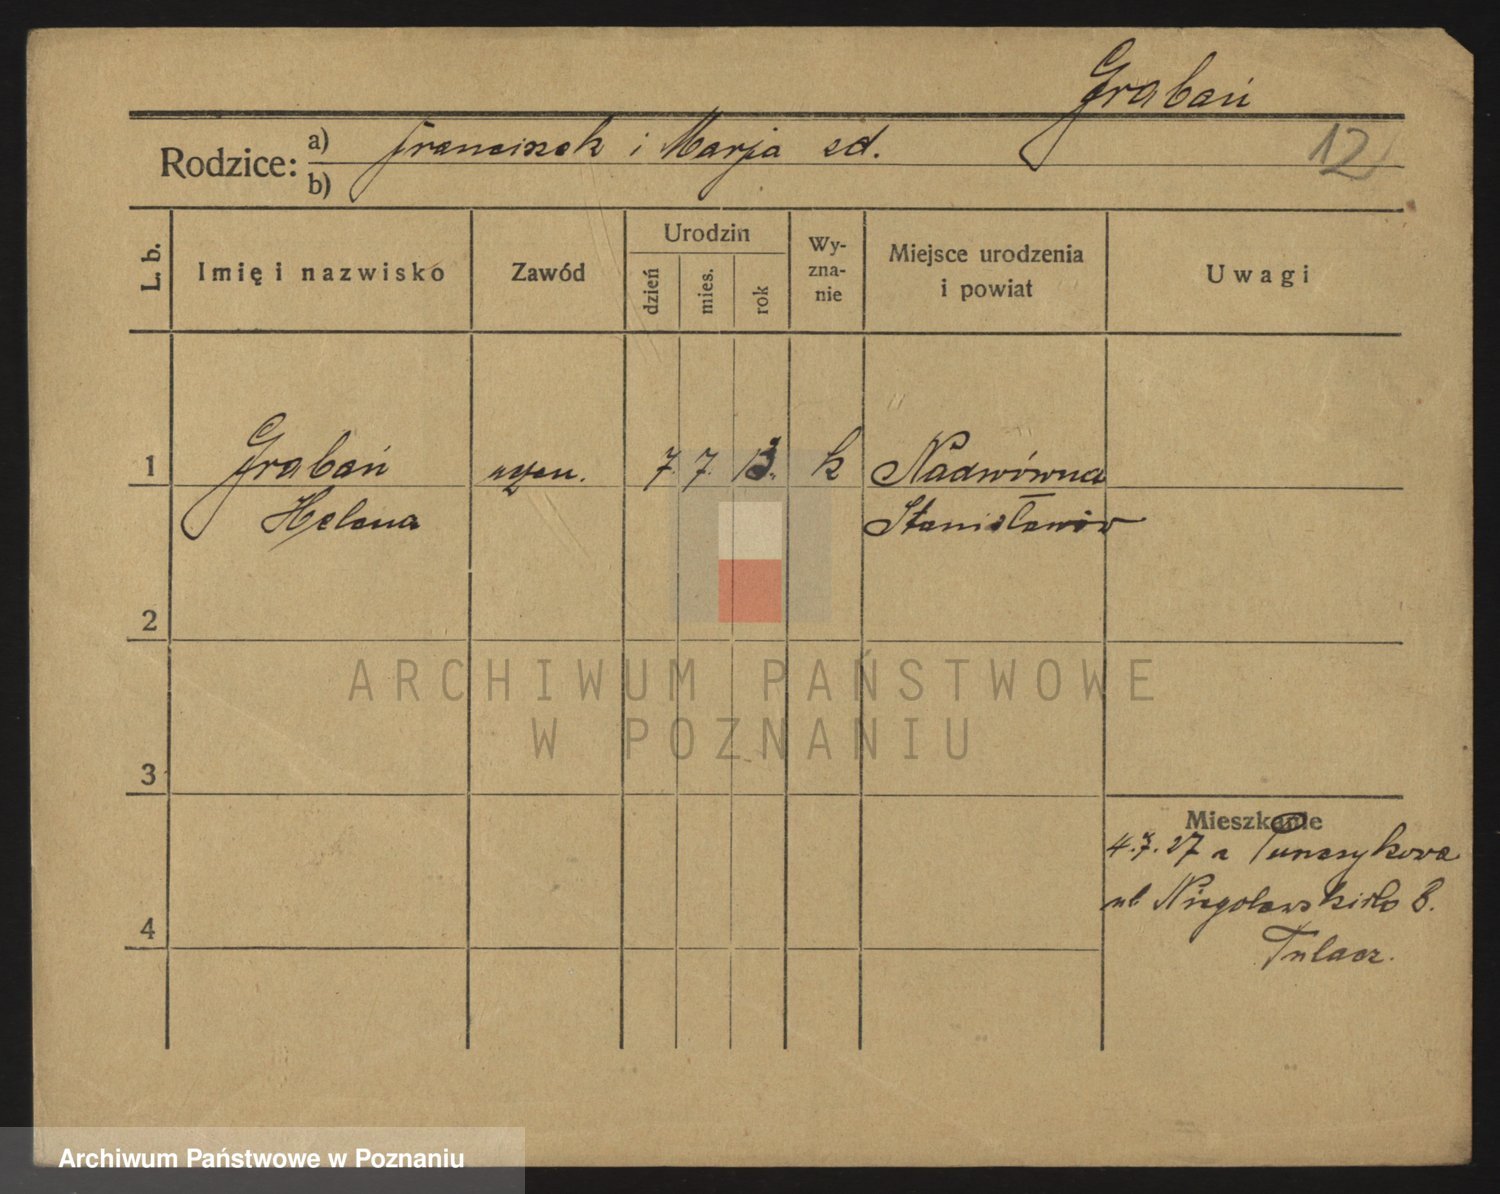 Grabań
12
Rodzice: a) Franciszek i Marja zd.
b)
L. b.
Imię i nazwisko
Zawód
Urodzin
dzień
mies.
rok
Wy-
zna-
nie
Miejsce urodzenia
i powiat
Uwagi
1 Grabań uczen. 7. 7. 13. k Nadwórna
Helena Stanisławów
2
3
4
Mieszkanie
4.7.27 z
ul Niegolewskich 8.
Tulacz.
ARCHIWUM PAŃSTWOWE
W POZNANIU
Archiwum Państwowe w Poznaniu